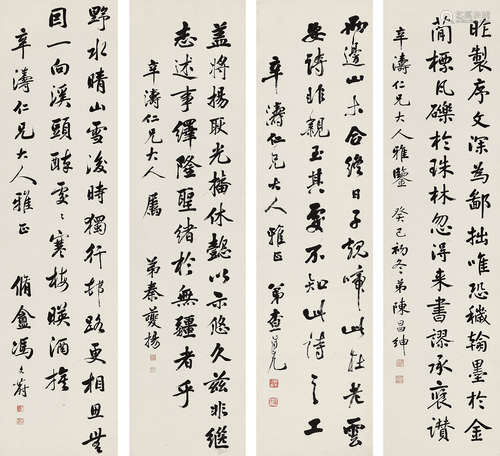 昨製序文深為鄙拙唯恐穢翰墨於金
蘭標瓦礫於珠林忽得來書謬承褒讚
辛濤仁兄大人雅鑒 癸巳初冬弟陳昌紳
兩邊山木合終日子規啼此杜老雲
安詩非親至其處不知此詩之工
辛濤仁兄大人雅正 弟查
蓋將揚耿光播休懿以示悠久茲非繼
志述事繹隆聖緒於無疆者乎
辛濤仁兄大人屬 弟秦夔揚
野水晴山雪後時獨行邨路更相思無
因一向溪頭醉處〻寒梅暎酒旗
辛濤仁兄大人雅正 脩盦馮文蔚